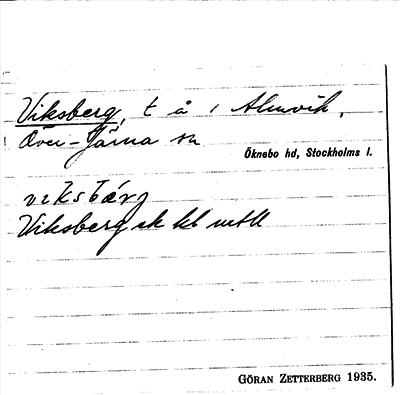 Viksberg, t å / Almvik,
Över-Järna sn
Öknebo hd, Stockholms l.
vɩksbärj
Viksberg ek kt mtl
GÖRAN ZETTERBERG 1935.